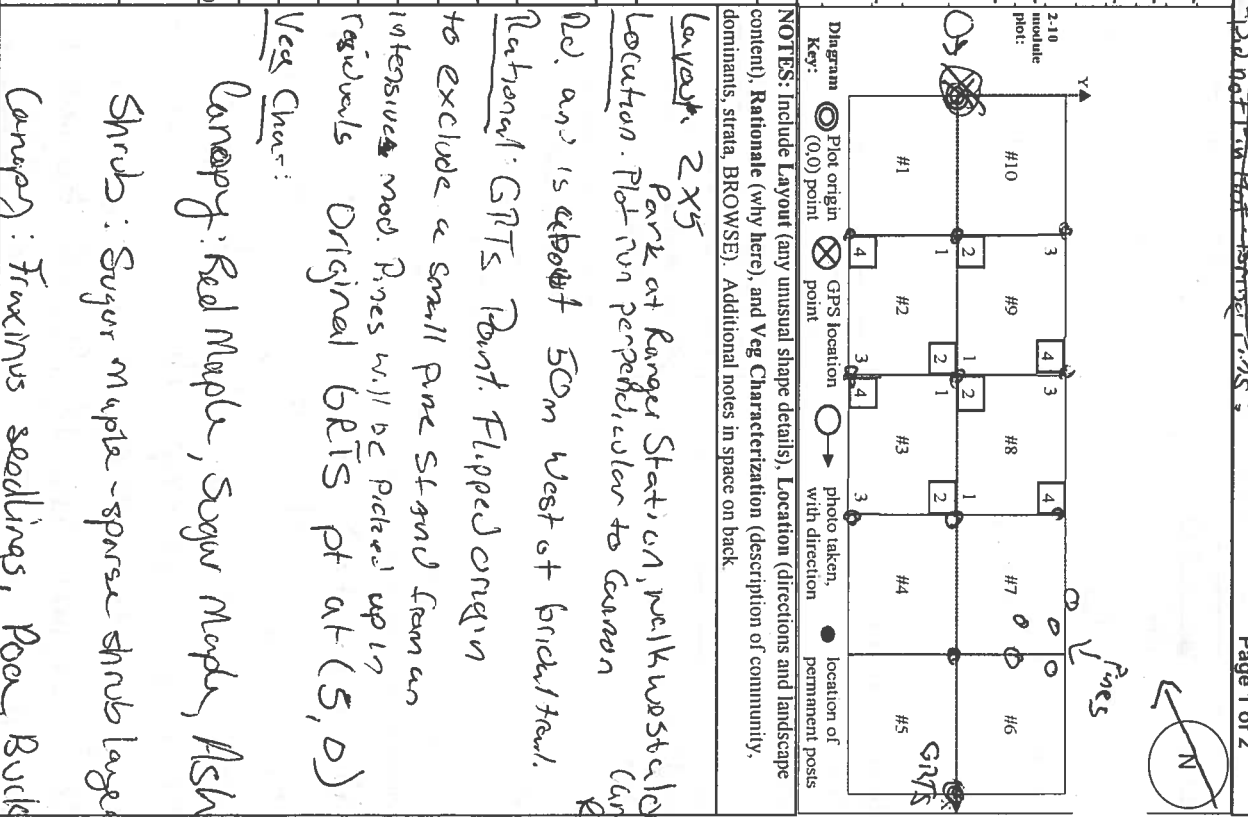 Did not
Page 1 of 2
2-10
module
plot:
Y
N
Pines
#10
#9
#8
#7
#6
3
4
3
4
2
1
2
1
1
2
1
2
#1
#2
#3
#4
#5
4
3
4
3
GRTS
Diagram Key:
Plot origin (0,0) point
GPS location point
photo taken, with direction
location of permanent posts
NOTES: Include Layout (any unusual shape details), Location (directions and landscape
content), Rationale (why here), and Veg Characterization (description of community,
dominants, strata, BROWSE). Additional notes in space on back.
Layout: 2x5
Location. Park at Ranger Station, walk west
Plot run perpendicular to Cannon
Rd. and is about 50m West of bridal trail.
Rational: GRTS Point. Flipped origin
to exclude a small pine stand from an
intensive mod. Pines will be picked up in
residuals Original GRTS pt at (5,0)
Veg Char:
Canopy: Red Maple, Sugar Maple, Ash
Shrub: Sugar maple - sparse shrub layer
Canopy: Fraxinus seedlings, Poa,